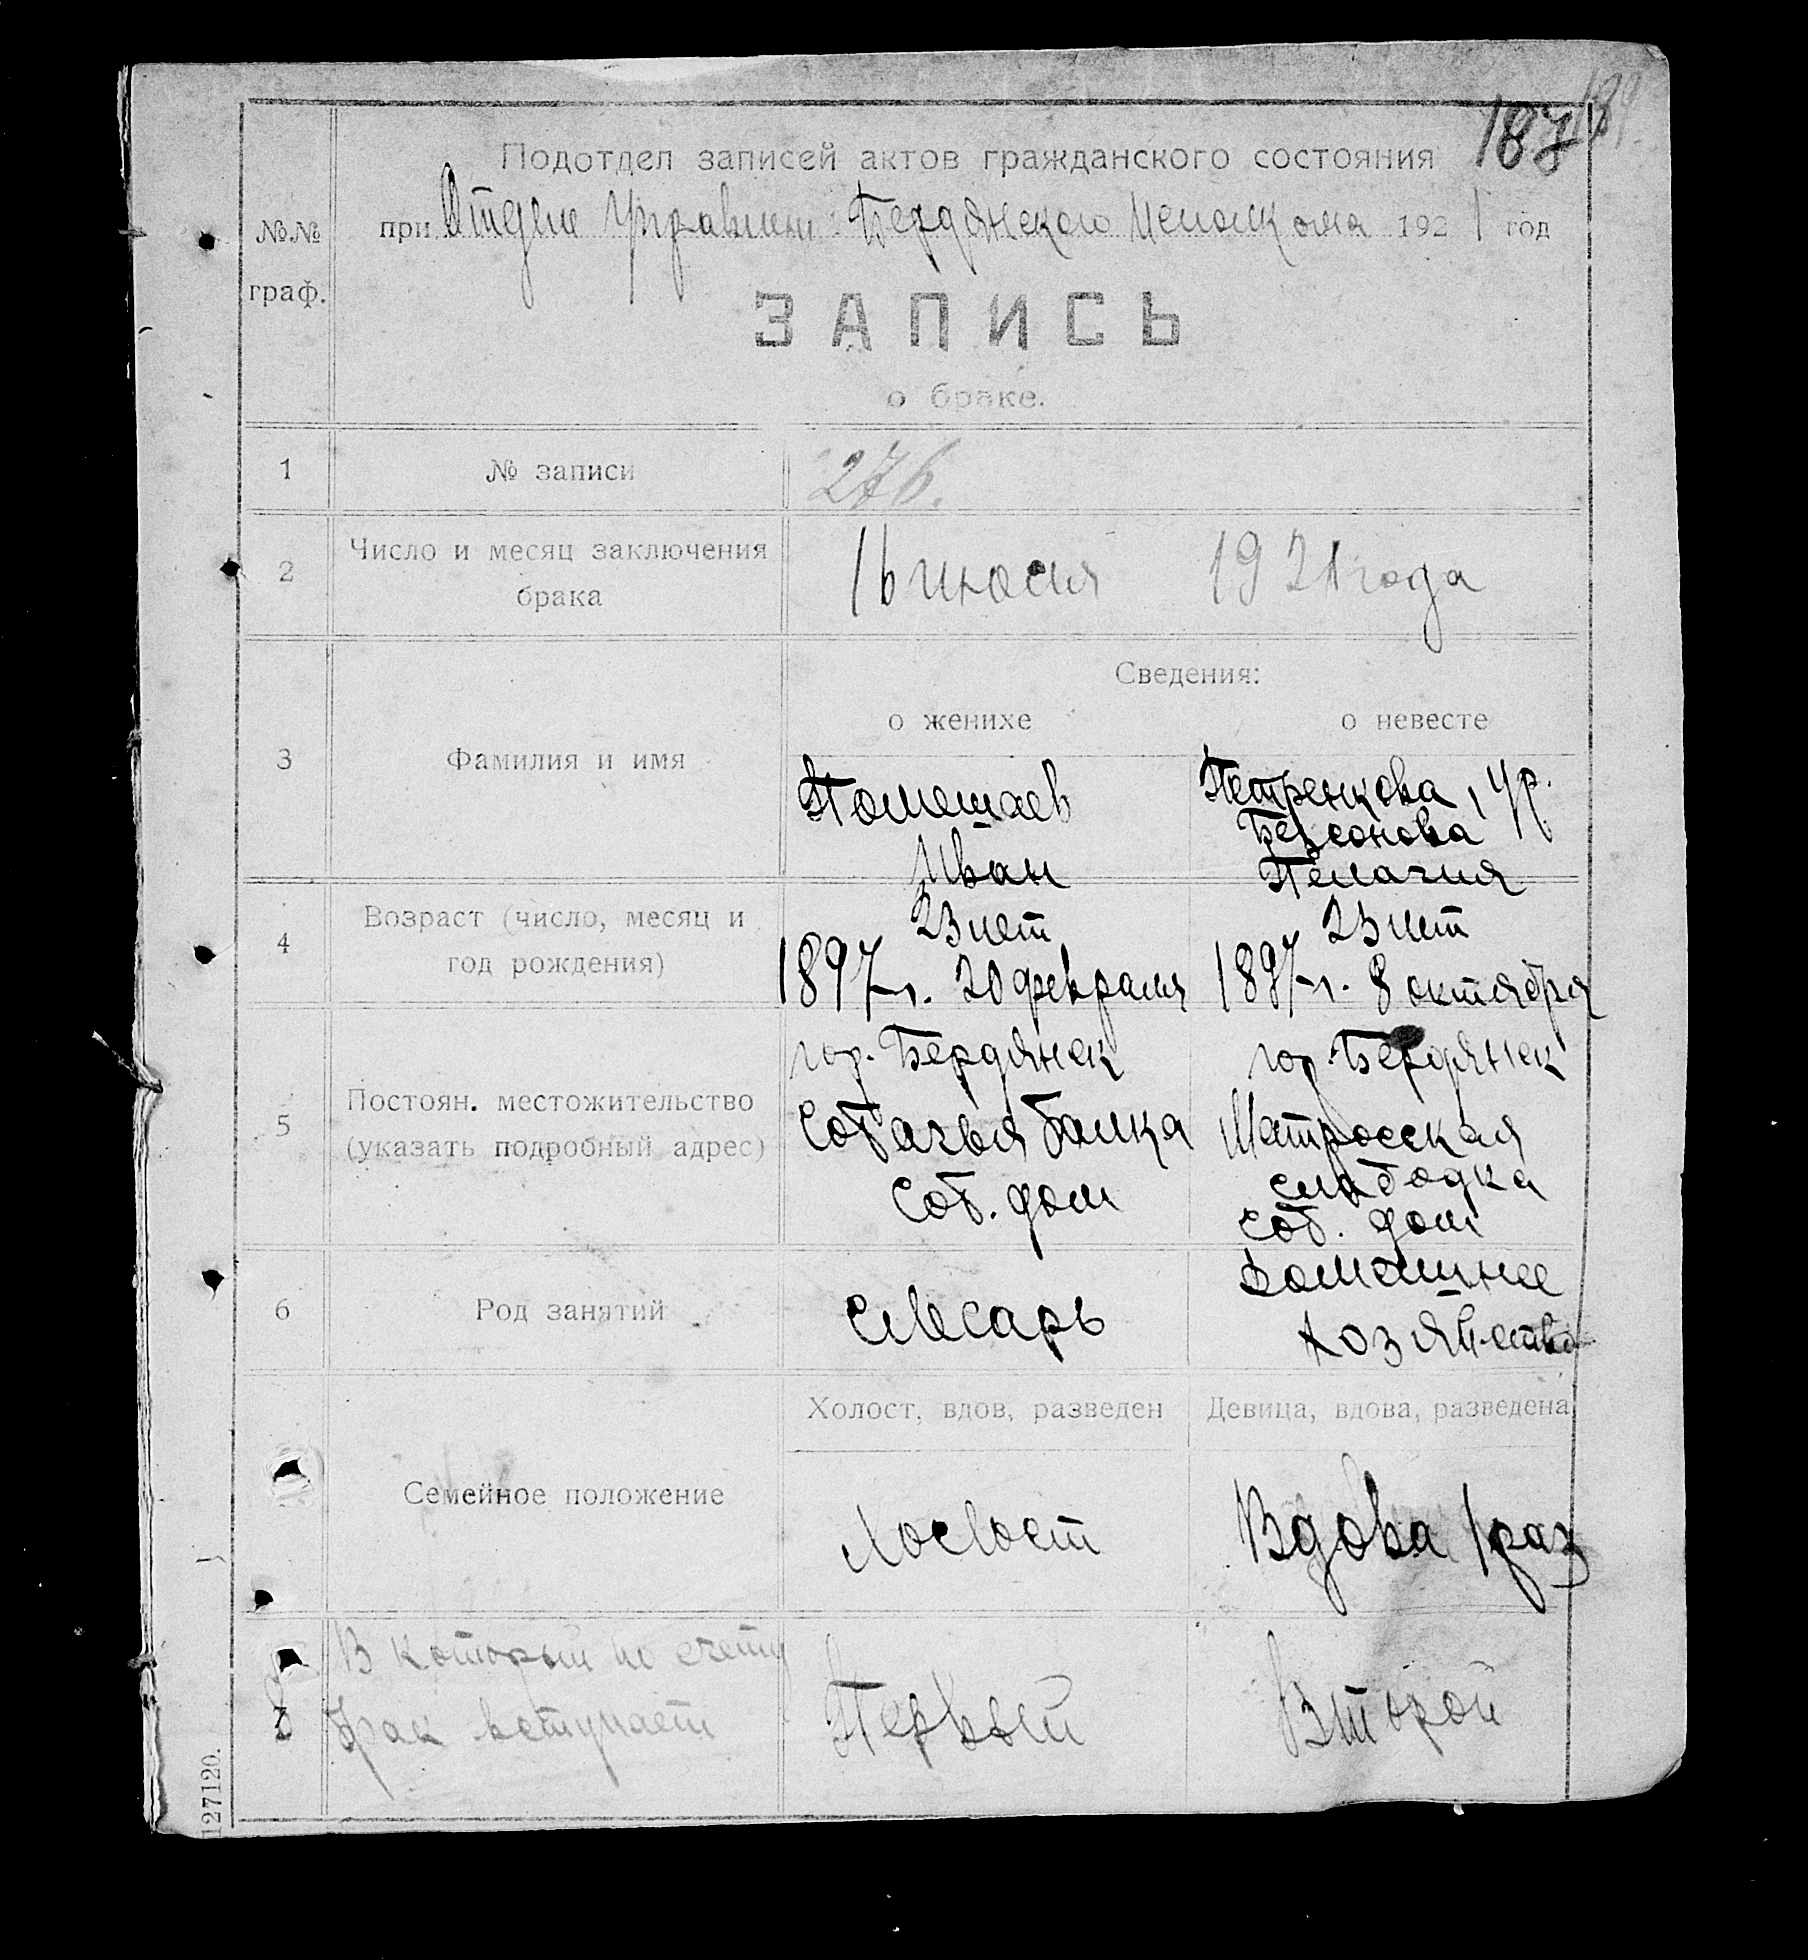 187
Подотдел записей актов гражданского состояния
при Отделе Управлен. Бердянского Исполкома 1921 год
№№
граф.
ЗАПИСЬ
о браке.
1 № записи 276.
2 Число и месяц заключения
брака
16 июля 1921 года
Сведения:
о женихе о невесте
3 Фамилия и имя
Помешаев Петренкова, ур.
Безсонова
Иван Пелагия
4 Возраст (число, месяц и
год рождения)
23 лет 23 лет
1897 г. 20 февраля 1897 г. 8 октября
5 Постоян. местожительство
(указать подробный адрес)
гор. Бердянск гор. Бердянск
Собачья балка Матросская
слободка
Соб. дом соб. дом
6 Род занятий
Слесарь Домашнее
хозяйство
Холост, вдов, разведен Девица, вдова, разведена
Семейное положение
Холост Вдова 1 раз
8 В который по счету
брак вступает
Первый Второй
127120.